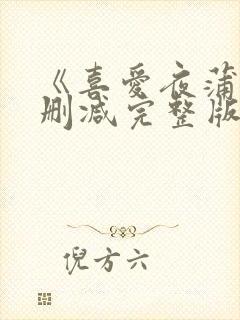 《喜爱夜蒲
删减完整版
倪方六